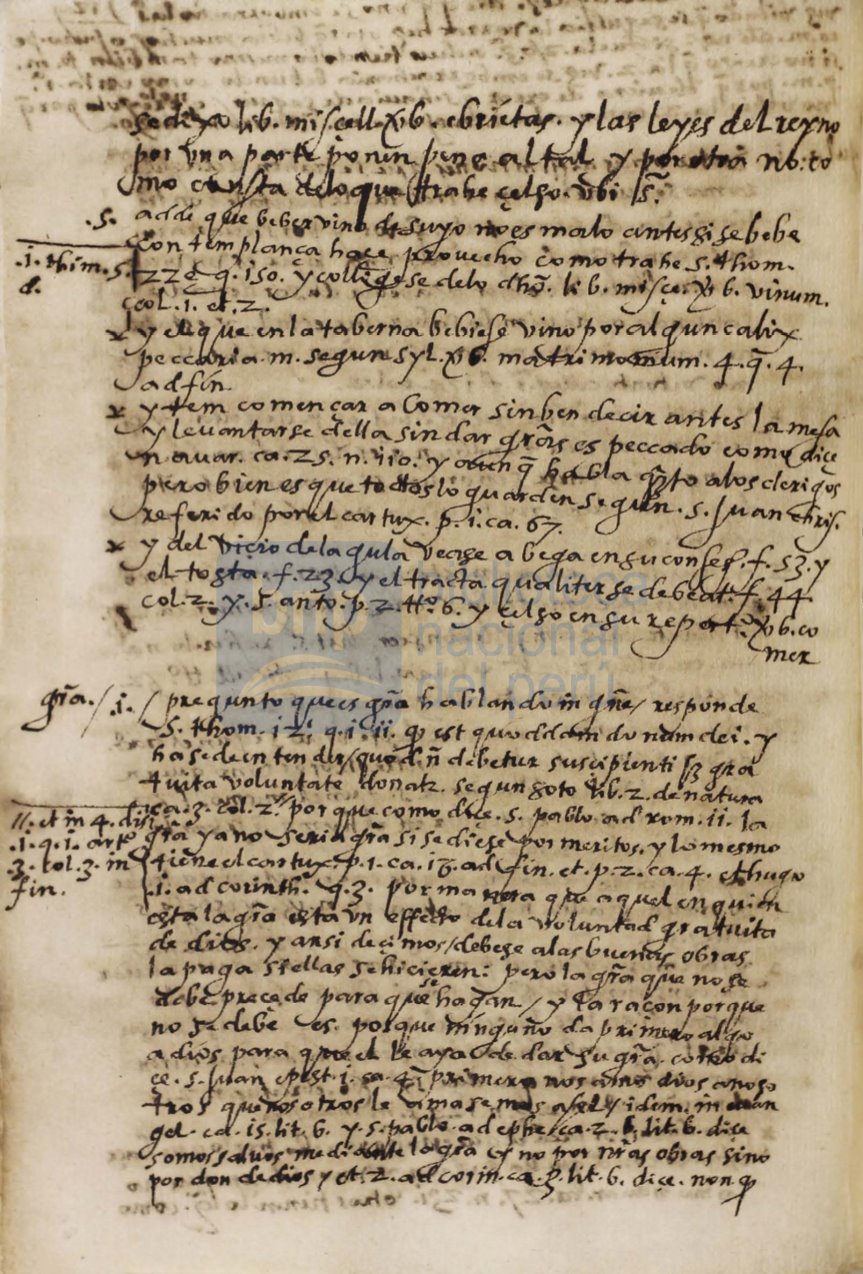 se dexo lib. miscell. vb. ebrietas. y las leyes del reyno
por vna parte ponen pena al tal y por otra no. co
mo consta de lo que trahe çelso. vbi s.
.5. adde que beber vino de suyo no es malo antes si se bebe
con templança haçe provecho como trahe. s. thom.
.1. thim. 5. 22ę q. 150. y collegese de lo dho. lib. misçe. vb. vinum.
d. col. 1. et. 2.
x y el que en la taberna bebiese vino por algun calix
peccaria. m. segun syl. vb. matrimonium. 4. q. 4.
ad fin.
x ytem començar a comer sin ben decir antes la mesa
y levantarse della sin dar grãs es peccado como diçe
navar. ca. 25. n. 110. y aunq̃ habla quanto a los clerigos
pero bien es que todos lo guarden segun. s. Juan chris.
referido por el cartux. p. 1. ca. 67.
x y del vicio de la gula vease a bega en su confes. f. 53. y
el tosta. f. 23. y el tracta qualiter se debeat. f. 44
col. 2. y. s. anto. p. 2. tto. 6. y çelso en su report. vb. co
mer
grã. / .1. / pregunto que es grã hablando in gñe / responde
s. thom. 12ę q. 1. 11. q̃ est quoddam donum dei. y
hase de entender / quod ñ debetur suscipienti sed gra
tuita voluntate donatr. segun soto lib. 2. de natura
ca. 3. col. 2. porque como diçe. s. pablo ad rom. 11. la
11. et in 4. dis. grã ya no seria grã si se diese por meritos. y lo mesmo
.1. q. 1. arto tiene el cartux. p. 1. ca. 13. ad fin. et. p. 2. ca. 4. et hugo
.3. col. 3. in .1. ad corinth. q. 3. por manera que aquel en quien
fin. esta la grã esta vn effecto de la voluntad gratuita
de dios. y ansi decimos / debese a las buenas obras
la paga si ellas se hicieren: pero la grã que no se
debe preçede para que se hagan / y la raçon porque
no se debe es. porque ninguno da primero algo
a dios para que el le aya de dar su grã. como di
çe. s. Juan epist. 1. ca. 4. primero nos amo dios a noso
tros que nosotros le amasemos a el / idem. in evan
gel. ca. 15. lit. b. y. s. pablo. ad ephe. ca. 2. b. lit. b. diçe
somos salvos mediante la grã y no por nrãs obras sino
por don de dios / et. 2. ad corin. ca. 3. lit. b. diçe. non q̃